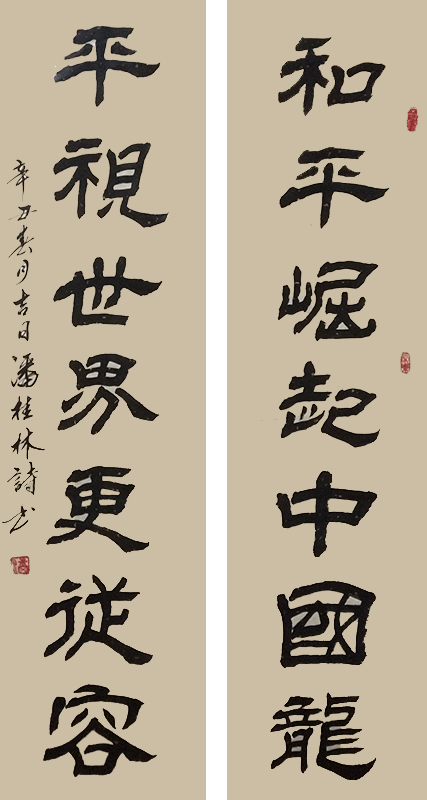 和平崛起中國龍
平視世界更從容
辛丑春月吉日潘桂林詩书